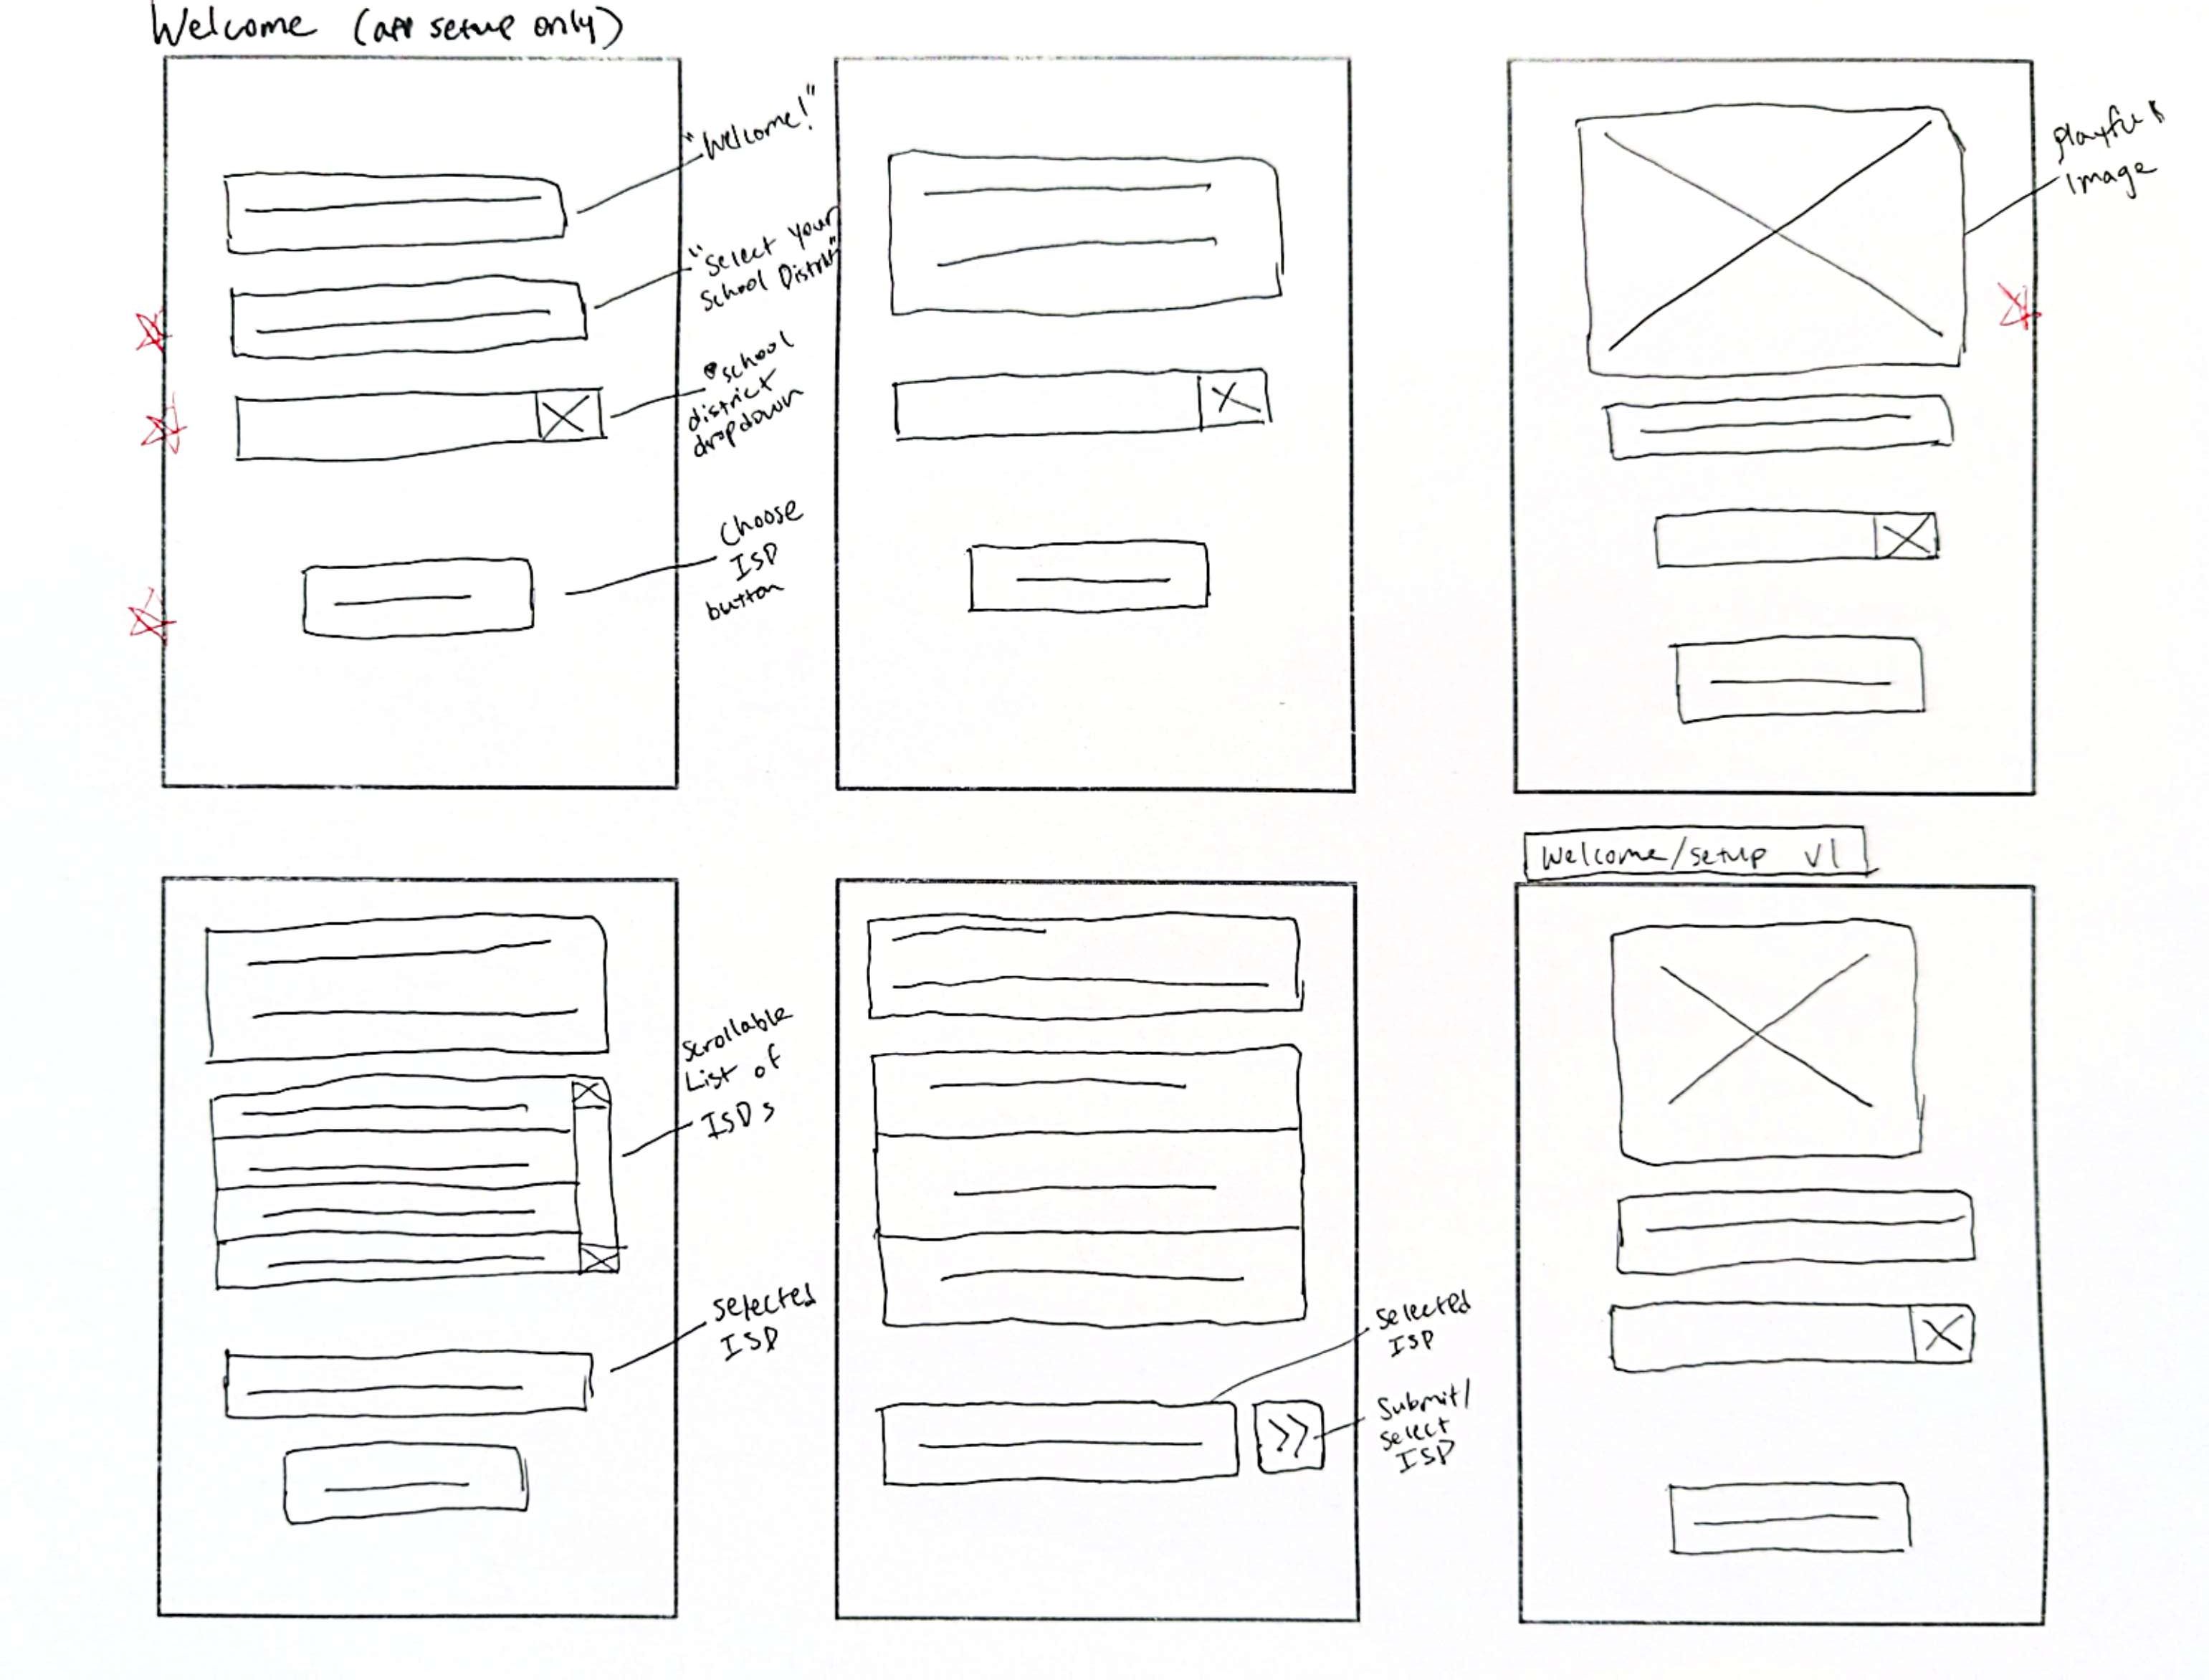 Welcome (app setup only)
"Welcome!"
"Select Your
School District"
school
district
dropdown
Choose
ISD
button
Playful
image
Scrollable
List of
ISDs
Selected
ISD
Selected
ISD
Submit/
select
ISD
>>
Welcome/setup v1